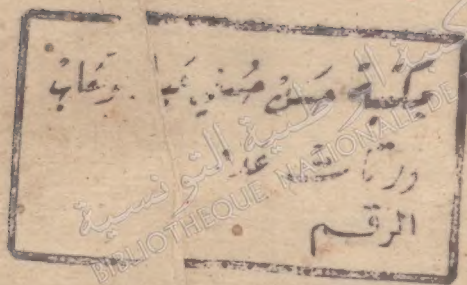 مكتبة حسن حسني عبد الوهاب
الرقم
المكتبة الوطنية التونسية
BIBLIOTHEQUE NATIONALE DE